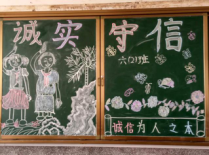 诚实守信
六(2)班
诚信为人之本